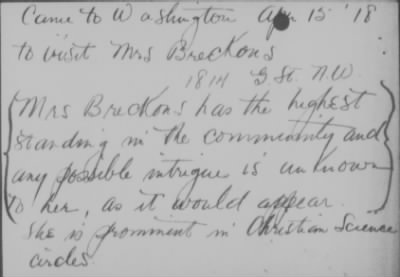 Came to Washington Apr 15 '18
to visit Mrs Breckons
1814 G St. N.W.
Mrs Breckons has the highest
standing in the community and
any possible intrigue is unknown
to her, as it would appear.
She is prominent in Christian Science
circles.